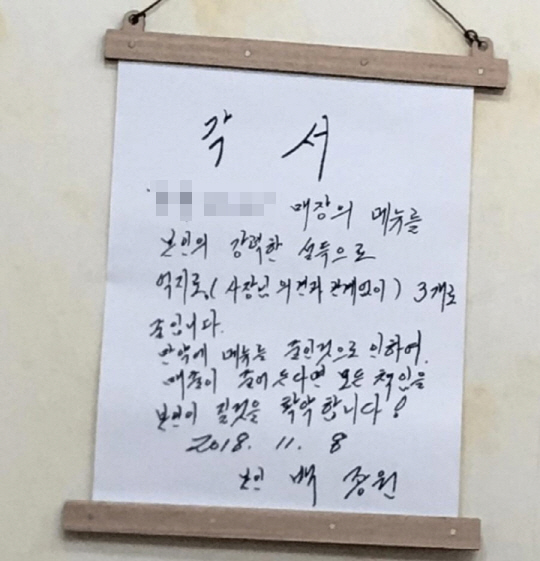 각 서
매장의 메뉴를
본인의 강력한 설득으로
억지로(사장님 의견과 관계없이) 3개로
줄입니다.
만약에 메뉴를 줄인것으로 인하여
매출이 줄어든다면 모든 책임을
본인이 질것을 확약합니다!
2018. 11. 8
본인 백종원